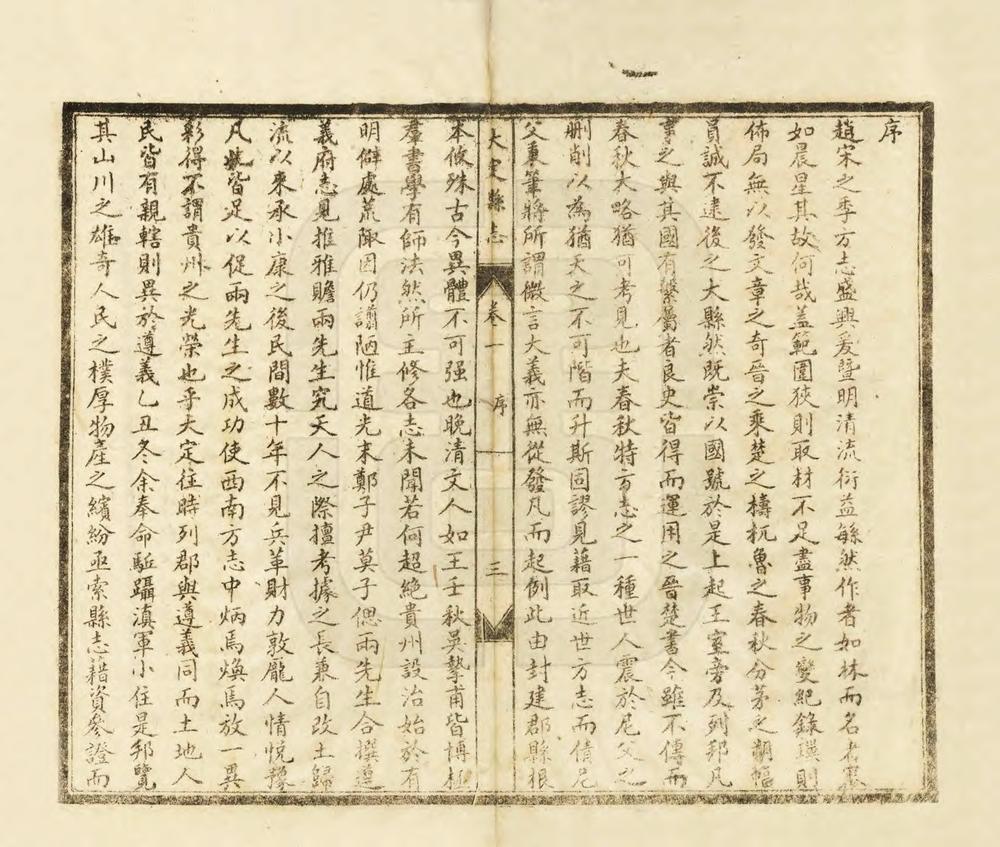 序
趙宋之季方志盛興爰暨明清流衍益繇然作者如林而名者寥
如晨星其故何哉蓋範圍狹則取材不足盡事物之變紀錄璅則
佈局無以發文章之奇晉之乘楚之檮杌魯之春秋分茅之嗣幅
員誠不逮後之大縣然既崇以國號於是上起王室旁及列邦凡
事之與其國有繫屬者良史皆得而運用之晉楚書今雖不傳而
春秋大略猶可考見也夫春秋特方志之一種世人震於尼父之
刪削以為猶天之不可階而升斯固謬見藉取近世方志而債尼
父秉筆將所謂微言大義亦無從發凡而起例此由封建郡縣根
大定縣志 卷一 序 三
本攸殊古今異體不可强也晚清文人如王壬秋吳摯甫皆博極
羣書學有師法然所主修各志未聞若何超絶貴州設治始於有
明僻處荒陬因仍譾陋惟道光末鄭子尹莫子偲兩先生合撰遵
義府志見推雅贍兩先生究天人之際擅考據之長兼自改土歸
流以來承小康之後民間數十年不見兵革財力敦龐人情悅豫
凡此皆足以促兩先生之成功使西南方志中炳焉煥焉放一異
彩得不謂貴州之光榮也乎大定往時列郡與遵義同而土地人
民皆有親轄則異於遵義乙丑冬余奉命駈躡滇軍小住是邦覽
其山川之雄奇人民之樸厚物產之繽紛亟索縣志藉資參證而